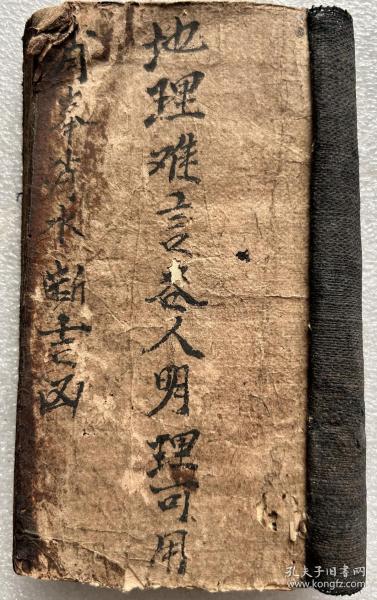 地理难言人明理可用
水断吉凶
孔夫子旧书网
www.kongfz.com